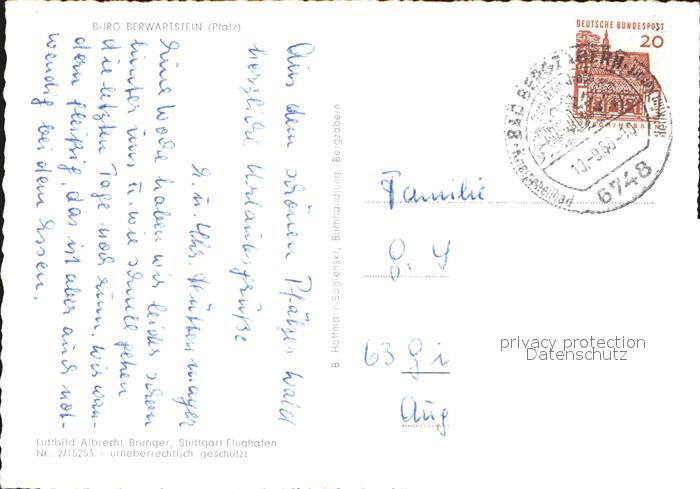 BURG BERWARTSTEIN (Pfalz)
Aus dem schönen Pfälzer Wald
herzliche Urlaubsgrüße
Eine Woche haben wir leider schon
hinter uns u. wie schnell gehen
die letzten Tage noch rum. Wir wan-
dern fleißig, das ist aber auch not-
wendig bei dem Essen.
Luftbild Albrecht Brugger, Stuttgart-Flughafen
Nr. 2/15253 - urheberrechtlich geschützt
B. Hoffmann-Baglenski, Buchhandlung, Bergzabern
DEUTSCHE BUNDESPOST
20
BAD BERGZABERN
10-9.66-10
6748
Familie
63 Gi
Aug
privacy protection
Datenschutz